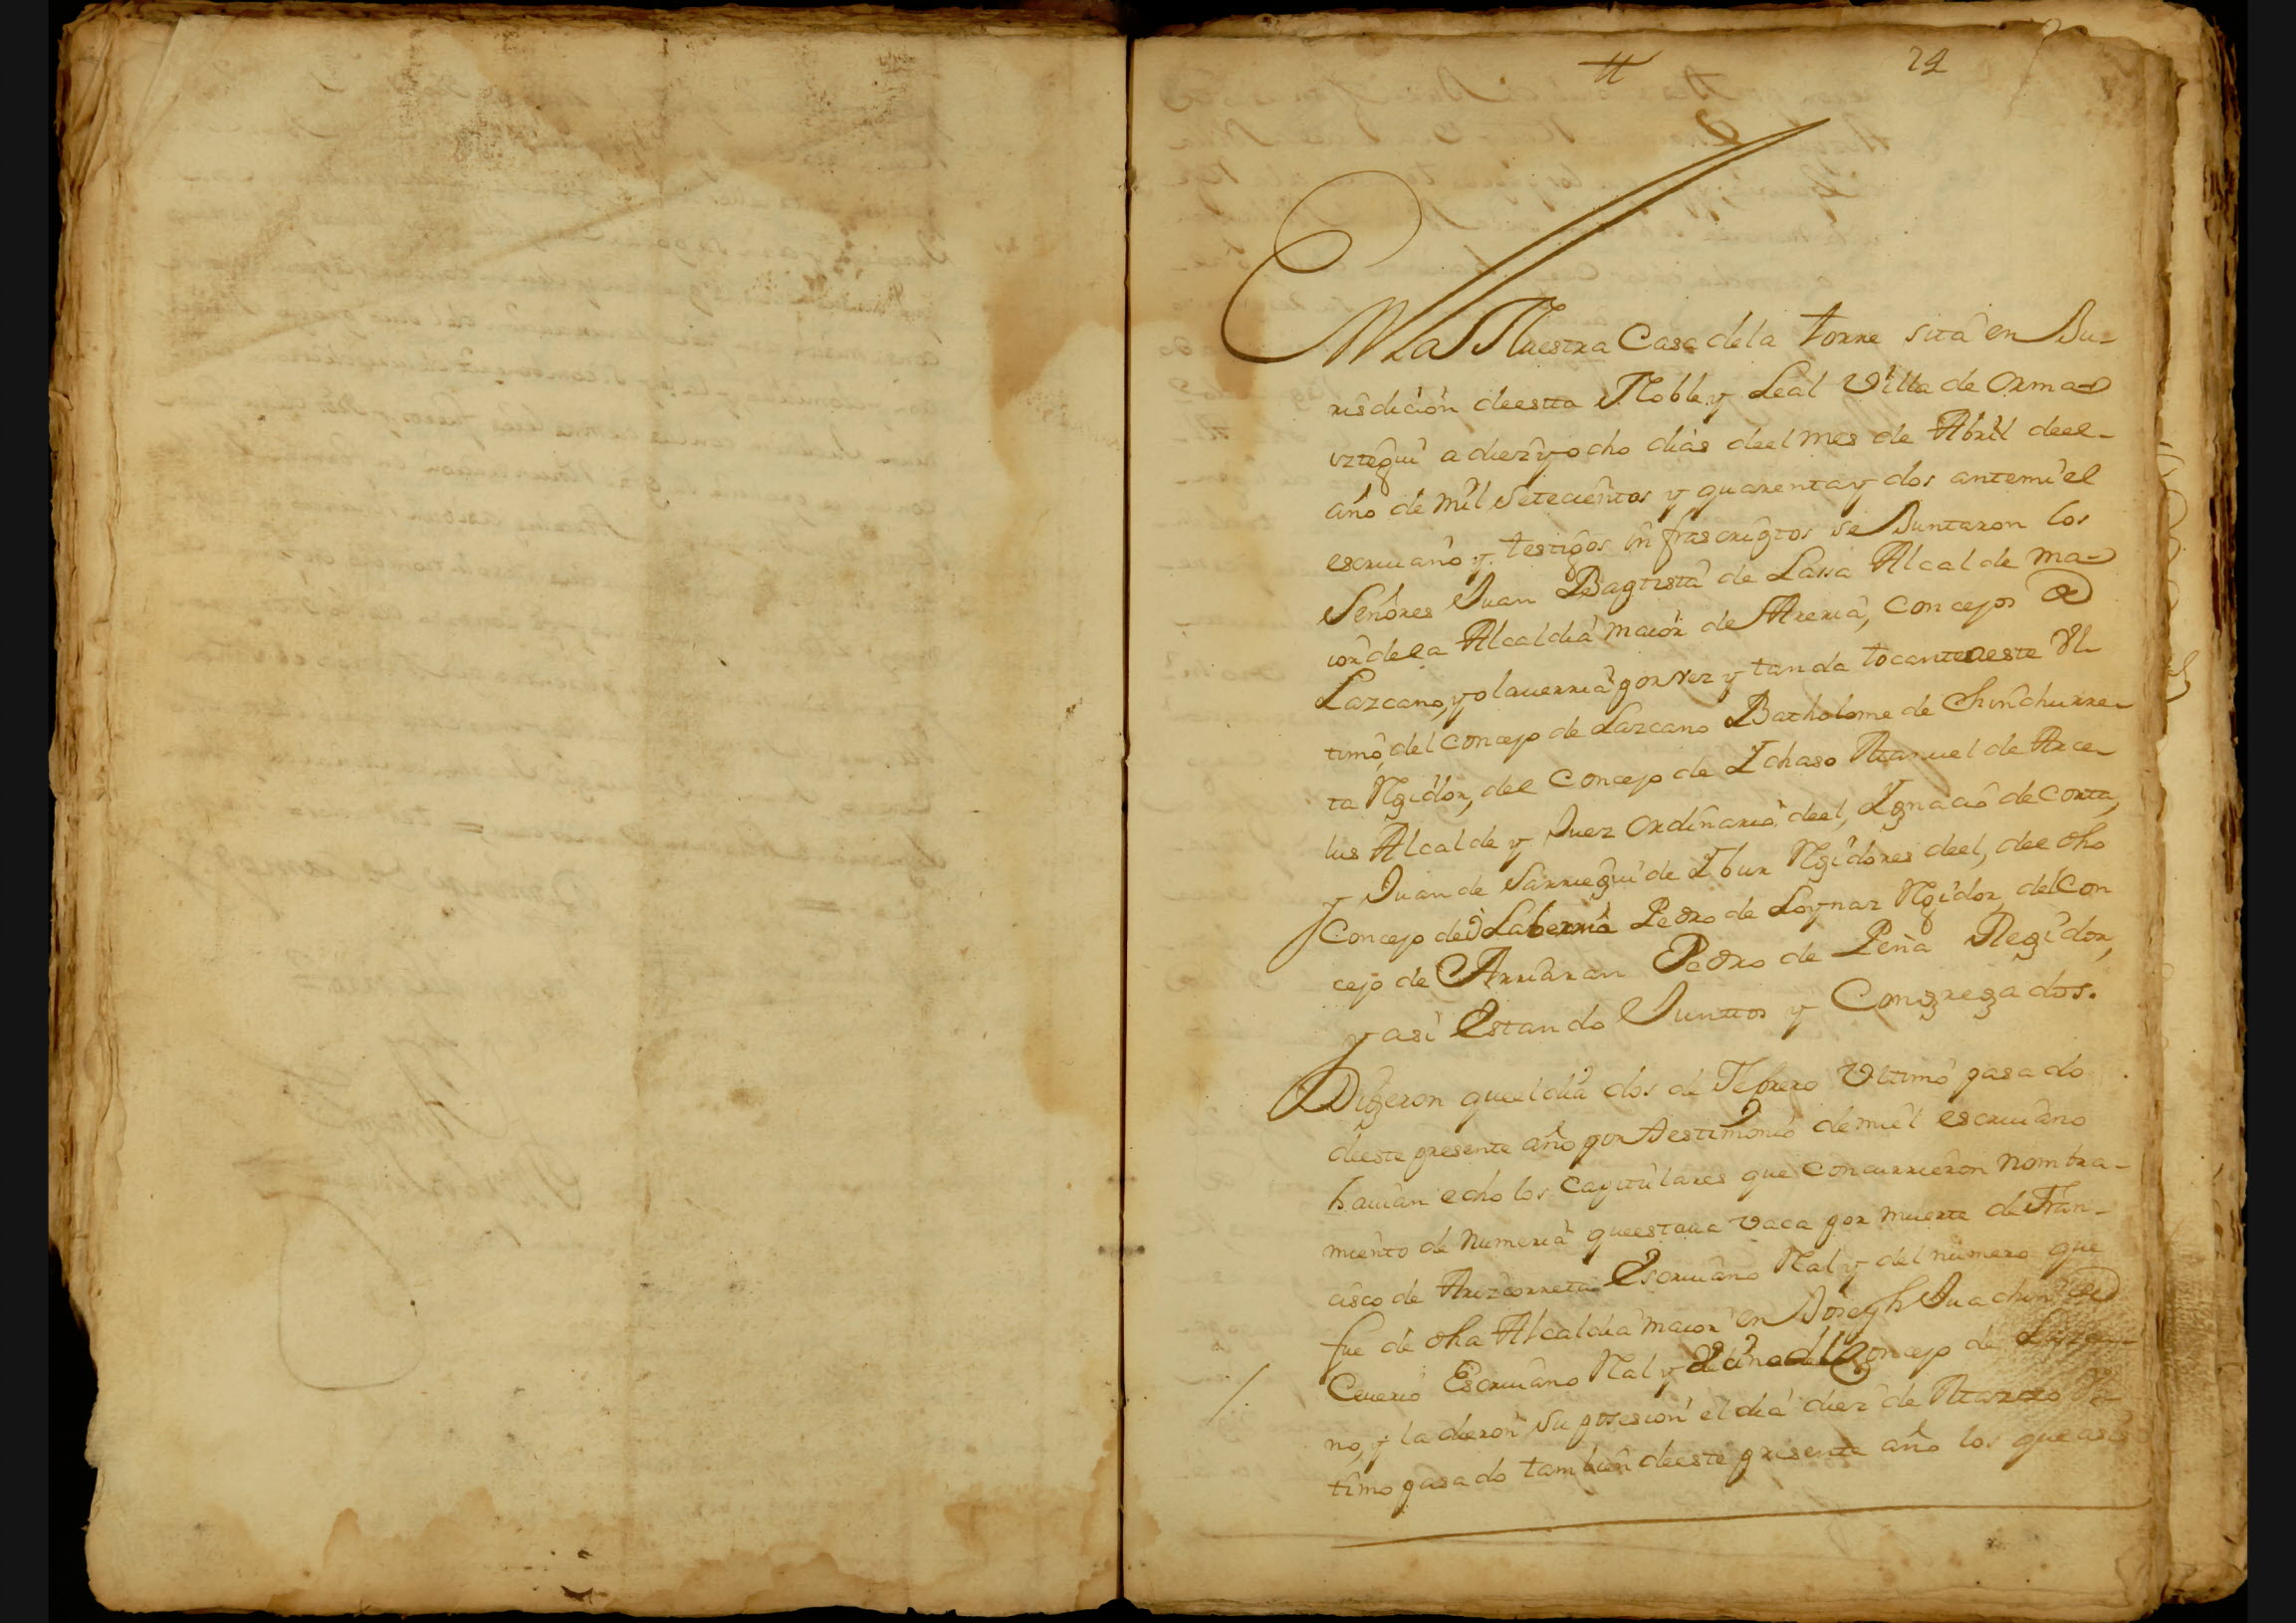 tt 24
En La Nuestra Casa de la torre sita en Ju-
risdicion deestta Noble y Leal Villa de Orma-
iztegui a diez y ocho dias deel mes de Abril deel
año de mil Setecientos y quarenta y dos antemi el
escriuano y testigos infrascriptos se Juntaron los
Señores Juan Baptista de Lassa Alcalde ma-
ior de la Alcaldia maior de Areria, Concejos de
Lazcano, y olauerria por vez y tanda tocante a este Vl-
timo, del Concejo de Lazcano Bartholome de Chinchurre-
ta Rgidor, del Concejo de Ichaso Manuel de Arce-
lus Alcalde y Juez ordinario deel, Ignacio de Corta,
y Juan de Sarriegui de Ibur Rgidores deel, del dho
Concejo de olaberria Pedro de Loynaz Rgidor, del Con
cejo de Arriaran Pedro de Peña Regidor,
y asi Estando Junttos y Congregados.
Digeron que el dia dos de Febrero Vltimo pasado
deeste presente año por testimonio de mi el escriuano
hauian echo los Capitulares que Concurrieron nombra-
miento de Numeria que estaua vaca por muerte de Fran-
cisco de Arizcorreta Escriuano Ral y del numero que
fue de dha Alcaldia maior en Joseph Juachin de
Ceuerio Escriuano Ral y del Concejo de Lazca-
no, y la dieron su posesion el dia diez de Marzo Vl-
timo pasado tambien deeste presente año los que asi